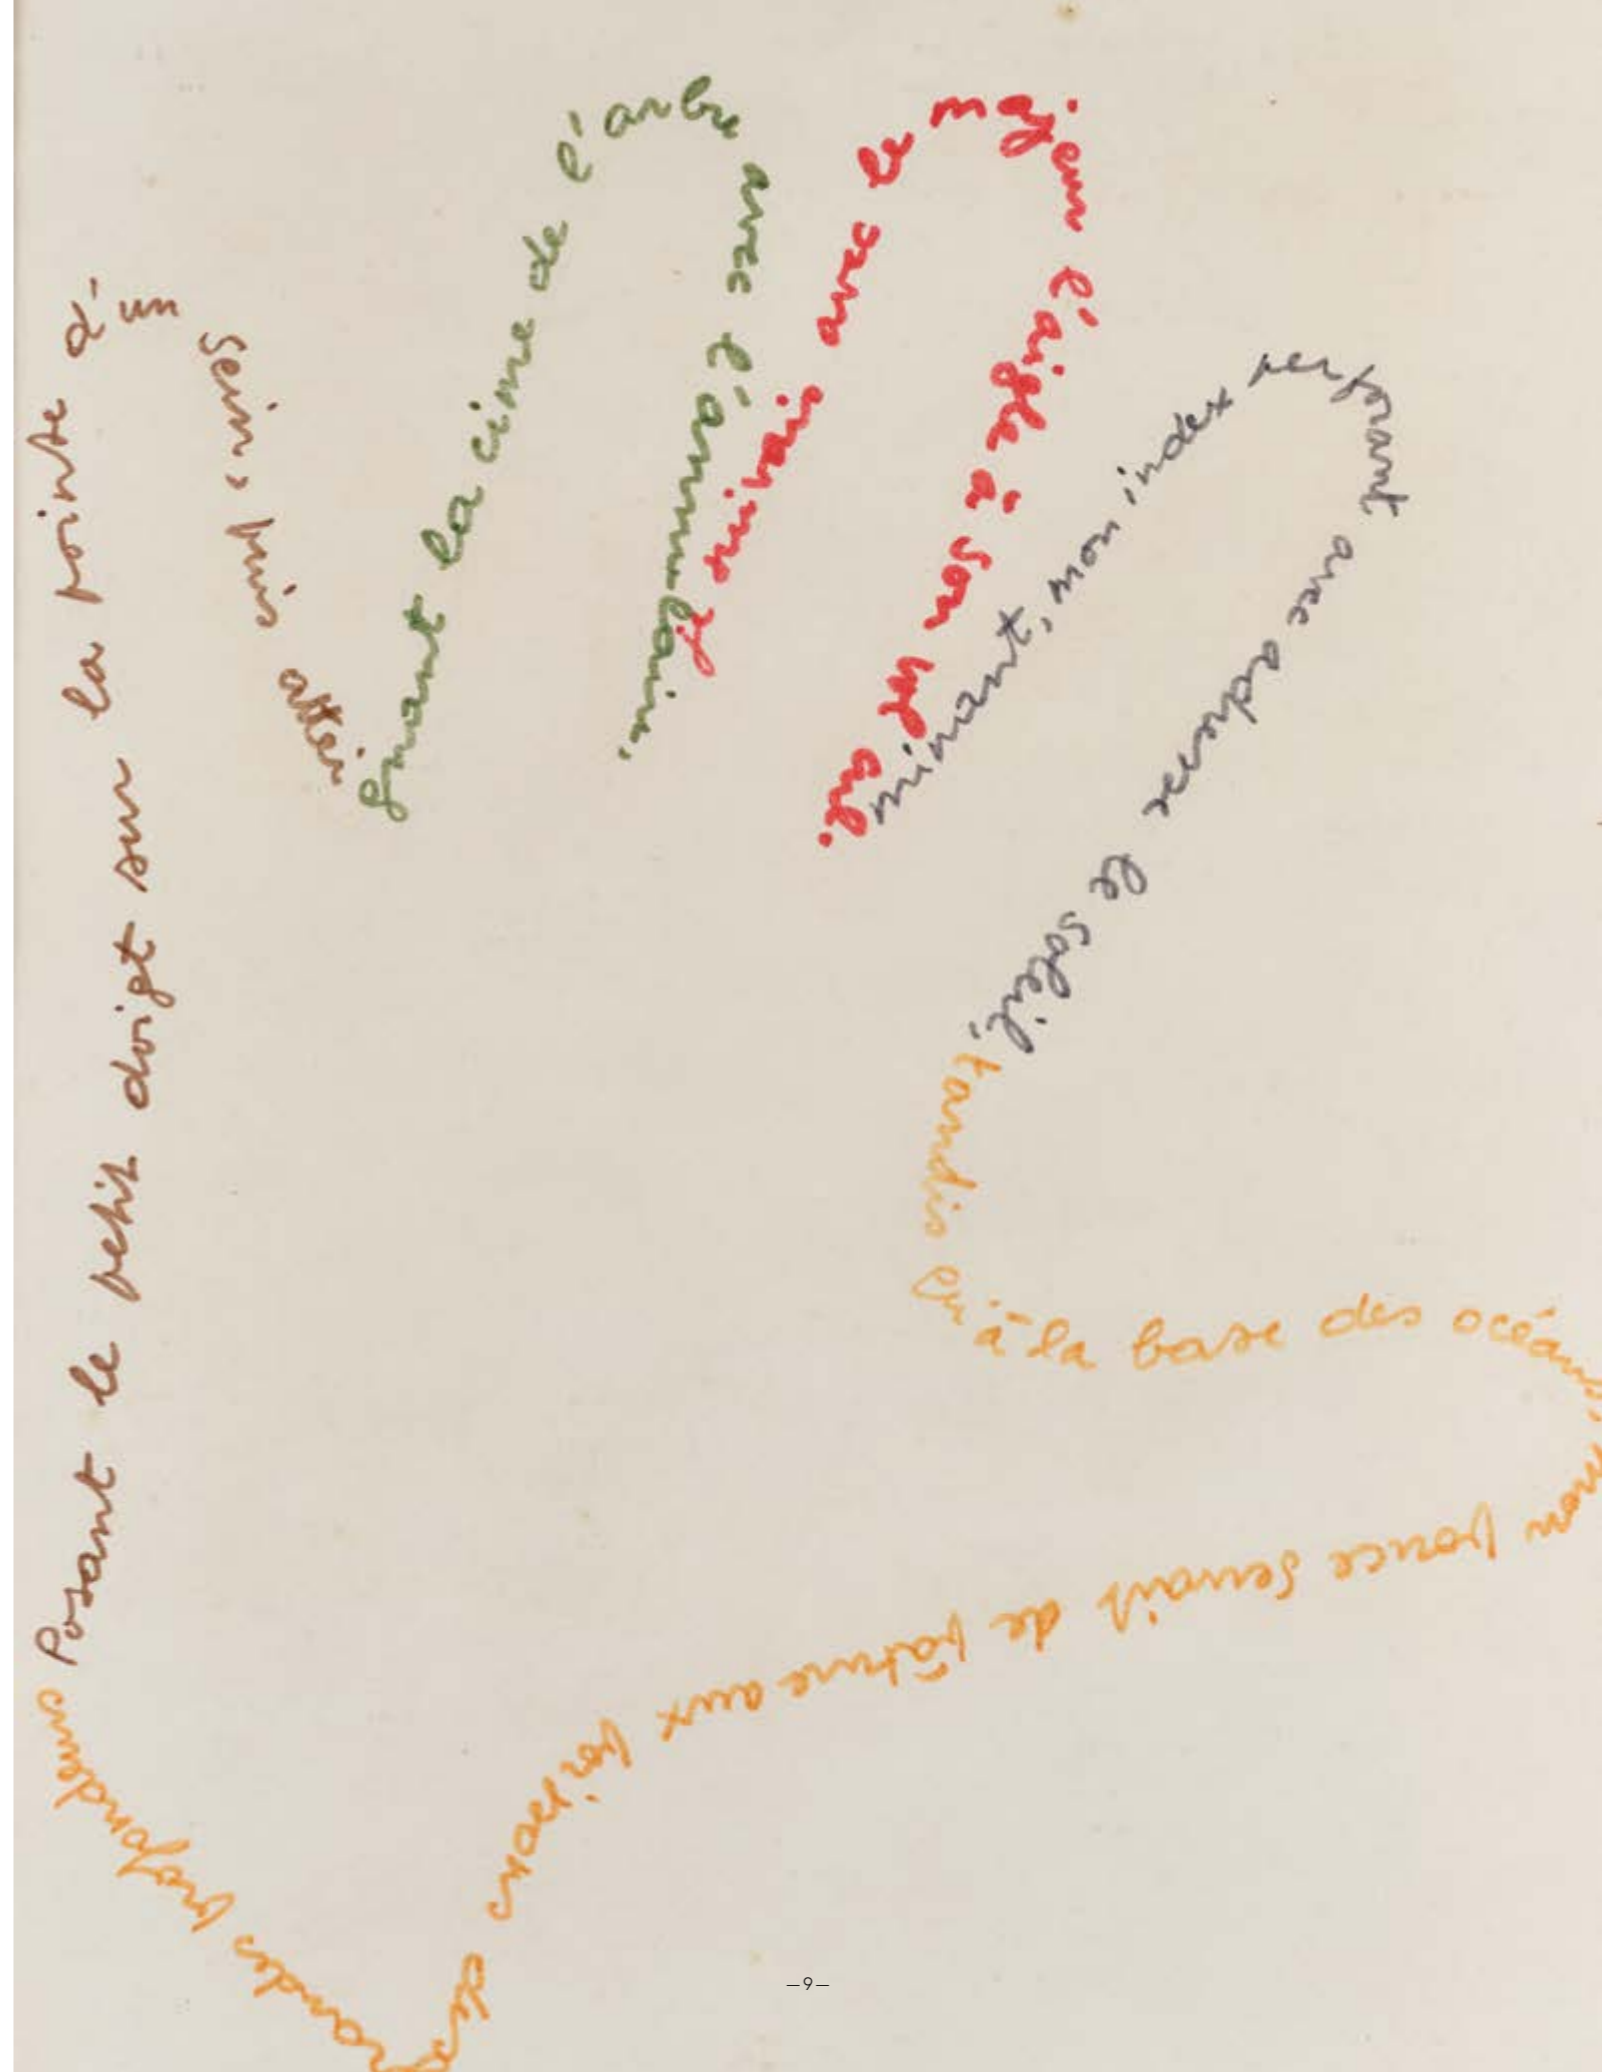 Posant le petit doigt sur la pointe d'un sein, puis attei
gnant la cime de l'arbre avec l'annulaire,
le majeur l'aigle à son
mon index perforant avec adresse le soleil,
tandis qu'à la base des océans, mon pouce servait de pâture aux poissons des profondeurs
–9–